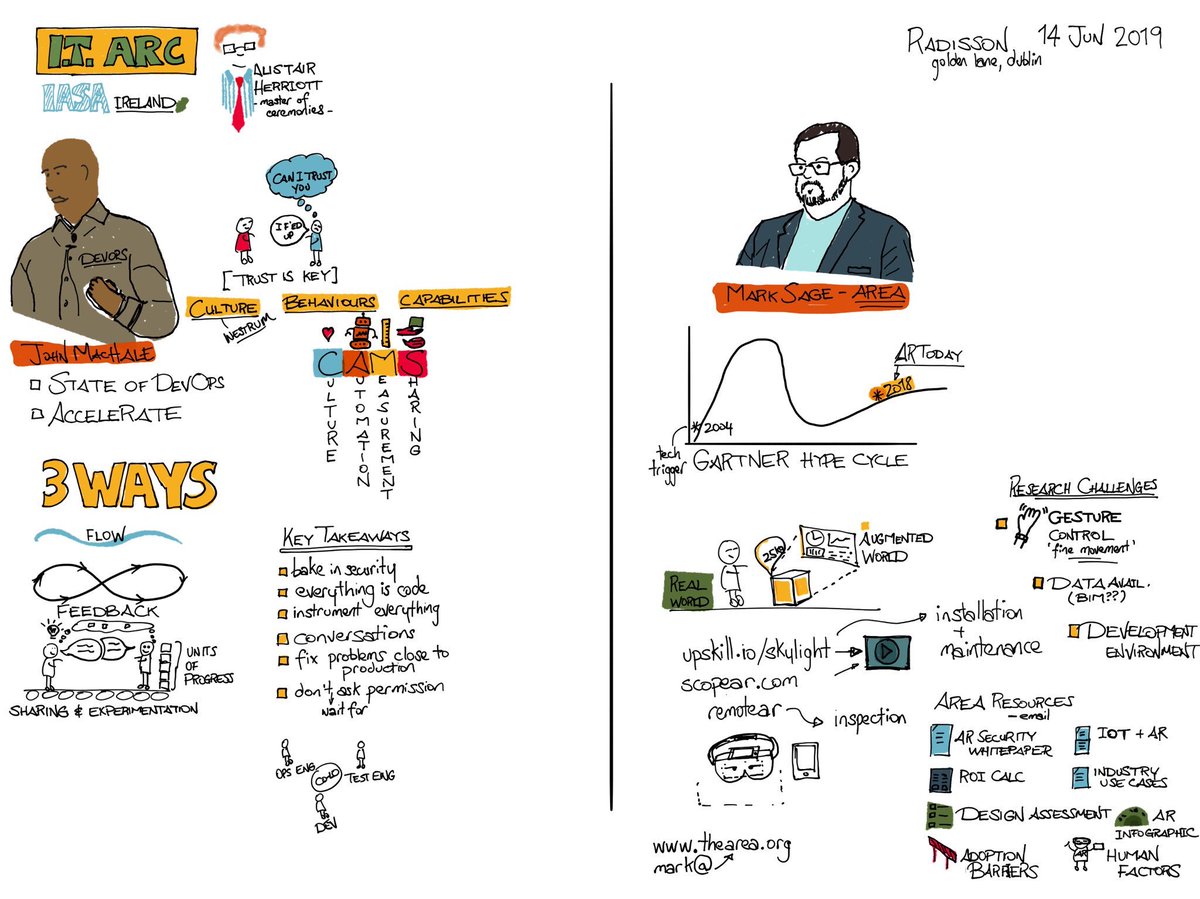 I.T. ARC
IASA IRELAND
ALISTAIR
HERRIOTT
- master of
ceremonies -
CAN I TRUST
YOU
I F'ED
UP
[TRUST IS KEY]
DEVOPS
JOHN MACHALE
CULTURE
WESTRUM
BEHAVIOURS
CAPABILITIES
CAMS
CULTURE
AUTOMATION
MEASUREMENT
SHARING
STATE OF DEVOPS
ACCELERATE
3 WAYS
FLOW
FEEDBACK
UNITS
OF
PROGRESS
SHARING & EXPERIMENTATION
KEY TAKEAWAYS
bake in security
everything is code
instrument everything
conversations
fix problems close to
production
don't ask permission
wait for
OPS ENG
TEST ENG
DEV
RADISSON 14 JUN 2019
golden lane, dublin
MARK SAGE - AREA
AR TODAY
* 2018
* 2004
tech
trigger
GARTNER HYPE CYCLE
REAL
WORLD
AUGMENTED
WORLD
RESEARCH CHALLENGES
GESTURE
CONTROL
'fine movement'
DATA AVAIL.
(BIM??)
DEVELOPMENT
ENVIRONMENT
upskill.io/skylight
scopear.com
installation
+
maintenance
remotear
inspection
www.thearea.org
mark@
AREA RESOURCES
- email
AR SECURITY
WHITEPAPER
IOT + AR
ROI CALC
INDUSTRY
USE CASES
DESIGN ASSESSMENT
AR
INFOGRAPHIC
ADOPTION
BARRIERS
HUMAN
FACTORS